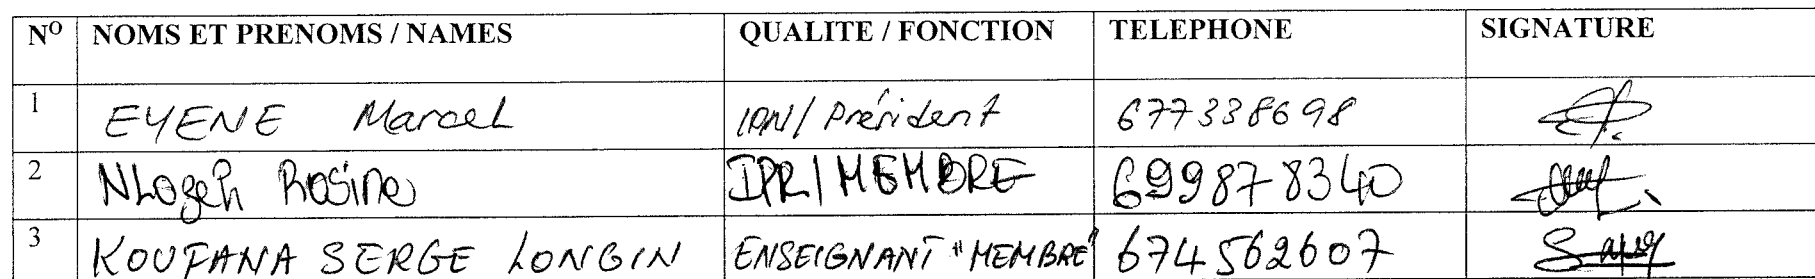 N° NOMS ET PRENOMS / NAMES QUALITE / FONCTION TELEPHONE SIGNATURE
1 EYENE Marcel IPN/Président 677338698
2 Nlozeh Rosine IPR/MEMBRE 699878340
3 KOUFANA SERGE LONGIN ENSEIGNANT "MEMBRE" 674562607